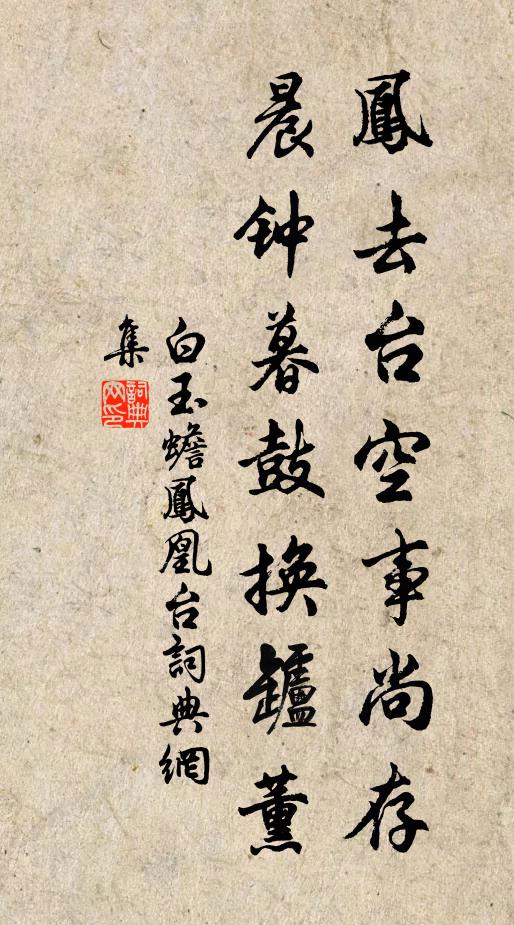 鳳去台空事尚存
晨钟暮鼓換鑪薰
白玉蟾鳳凰台詞典網
集
詞典网印